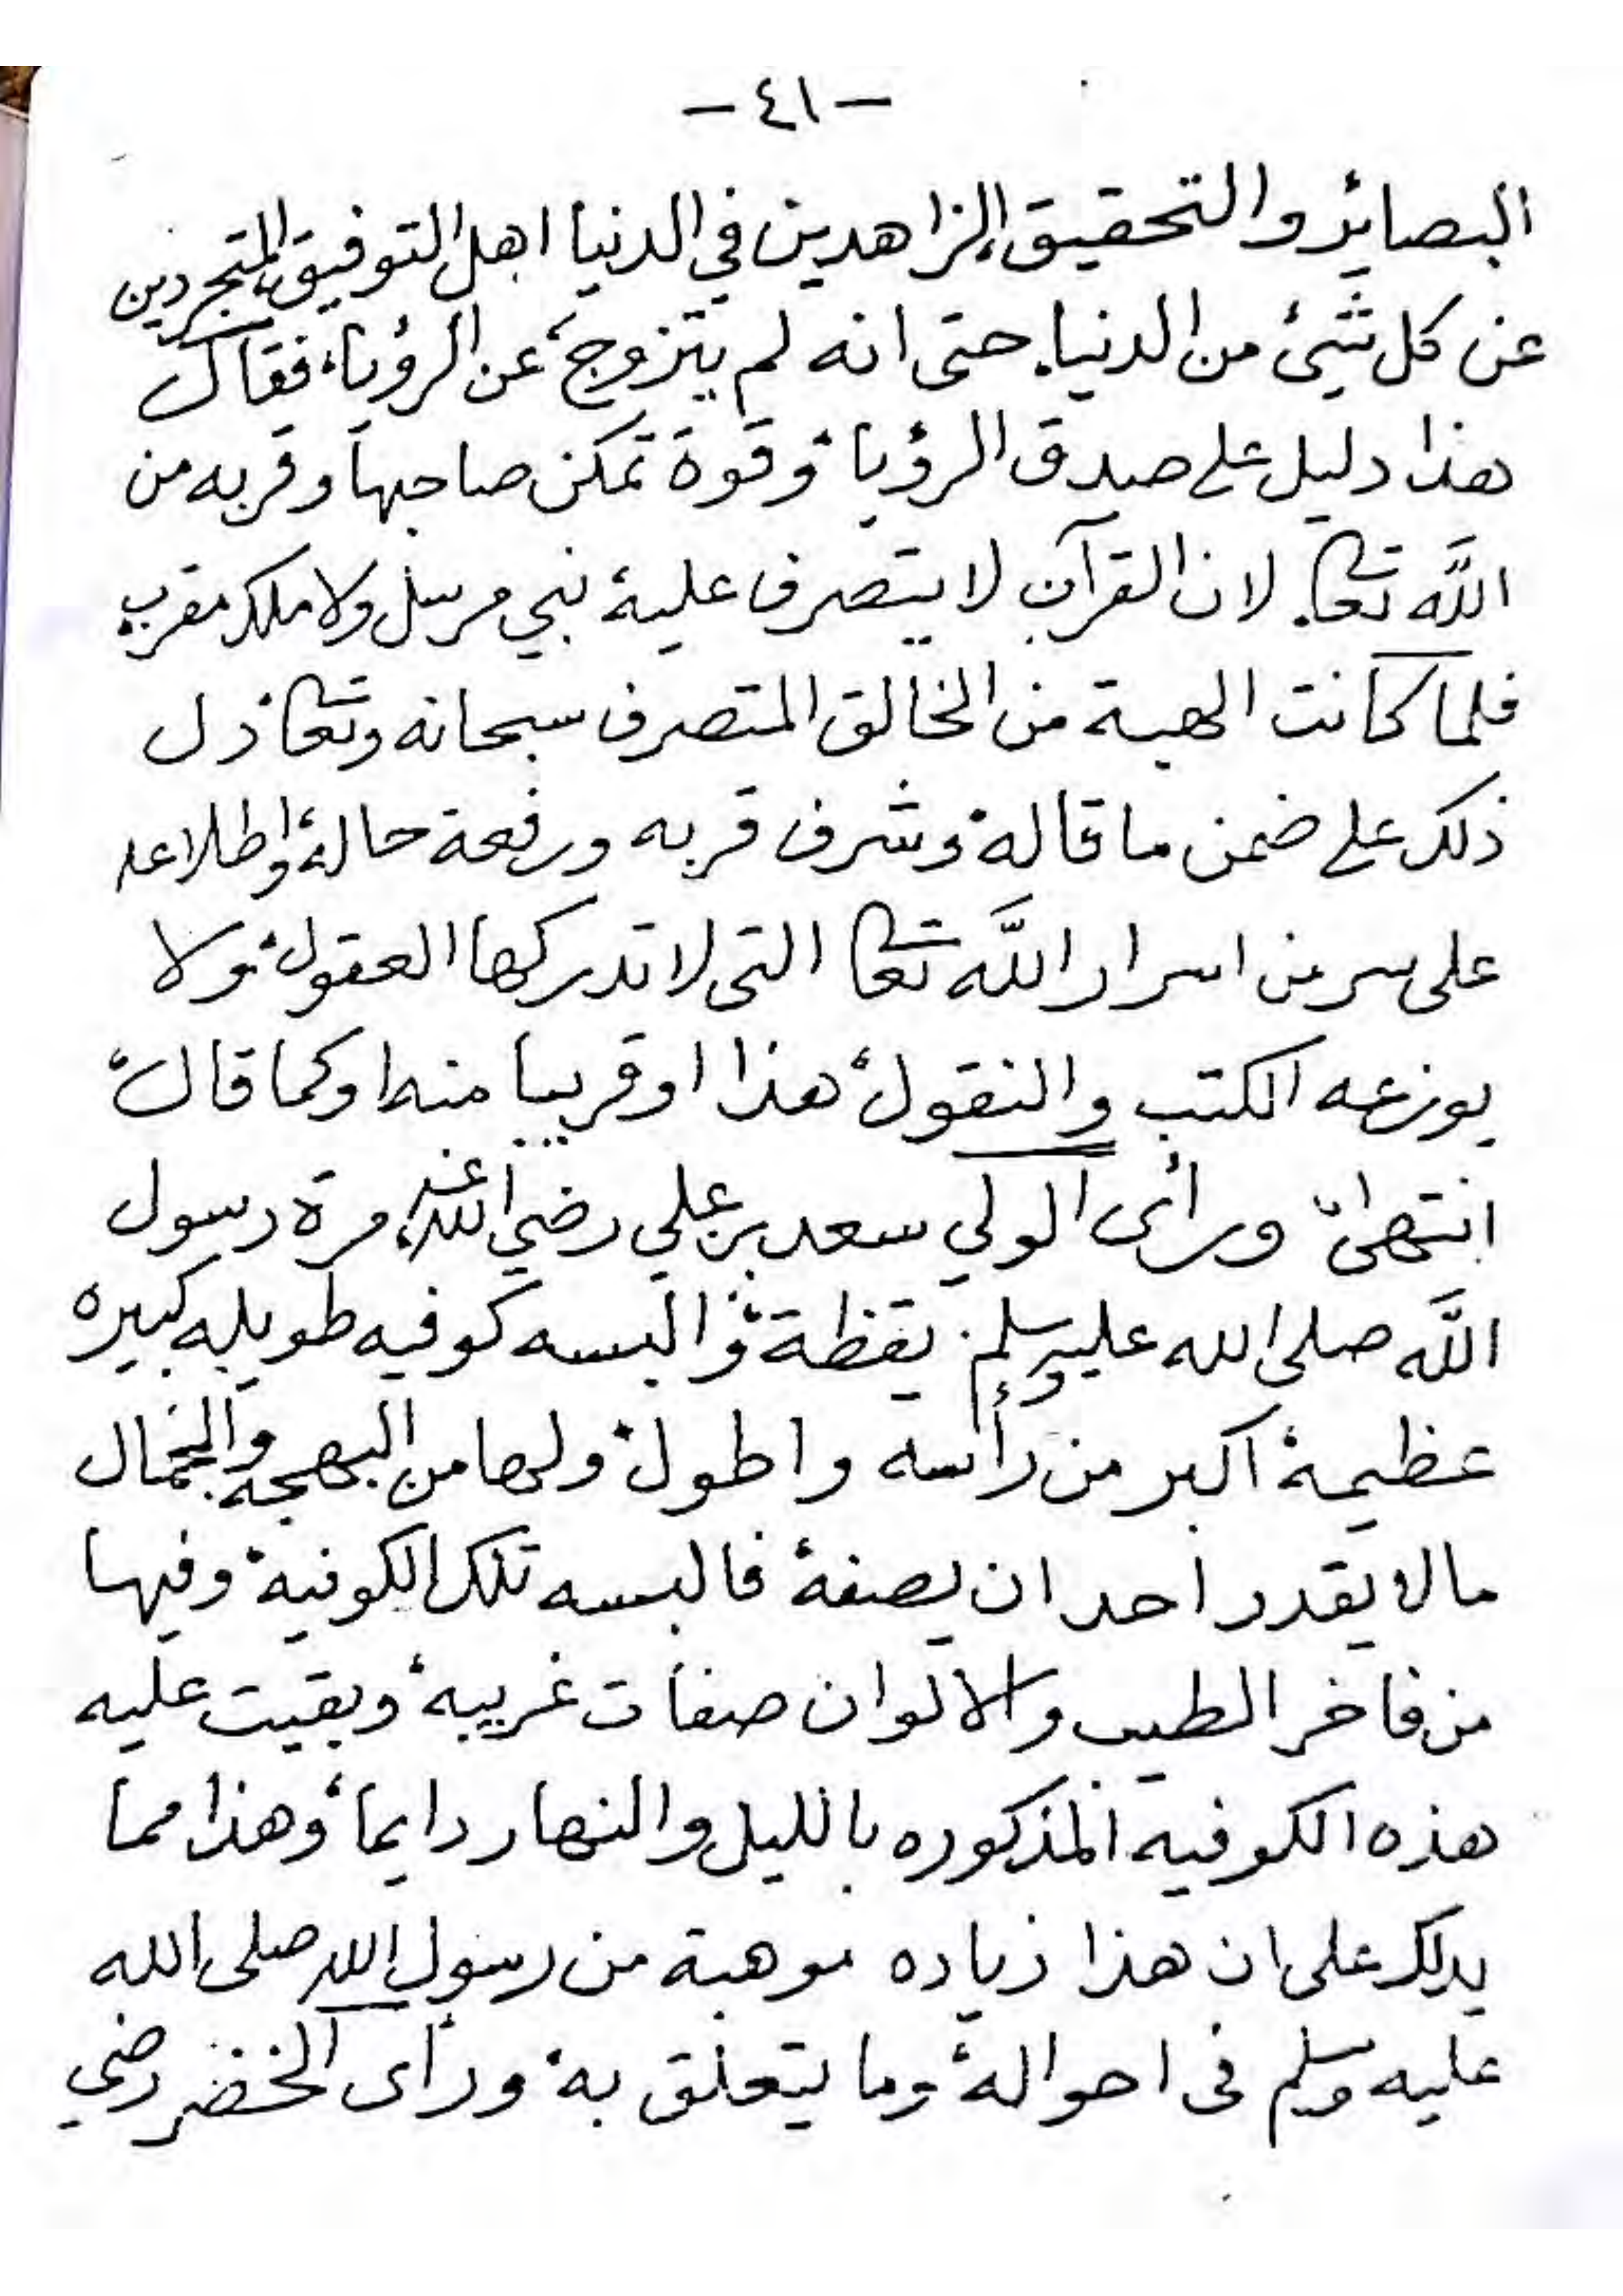 - ٤١ -
البصائر والتحقيق، الزاهدين في الدنيا اهل التوفيق، المتجردين
عن كل شيئ من الدنيا. حتى انه لم يتزوج، عن الرؤيا، فقال
هذا دليل على صدق الرؤيا، وقوة تمكن صاحبها وقربه من
الله تعا. لان القرآن لا يتصرف عليه، نبي مرسل ولا ملك مقرب
فلما كانت الهبة من الخالق المتصرف سبحانه وتعا، دل
ذلك على ضمن ما قاله، وشرف قربه ورفعة حاله، واطلاعه
على سر من اسرار الله تعا التى لا تدركها العقول، ولا
يوزعه الكتب والنقول، هذا او قريبا منه، او كما قال،
انتهى، ورأى الولي سعد بن علي رضي الله عنه، مرة رسول
الله صلى الله عليه وسلم. يقظة، والبسه كوفيه طويله كبيره
عظيمة، اكبر من رأسه واطول، ولها من البهجه والجمال
مالا يقدر احد ان يصفه، فالبسه تلك الكوفية، وفيها
من فاخر الطيب والالوان صفات غريبه، وبقيت عليه
هذه الكوفيه المذكوره بالليل والنهار دايما، وهذا مما
يدلك على ان هذا زياده موهبة من رسول الله صلى الله
عليه وسلم فى احواله، وما يتعلق به، ورأى الخضر رضي